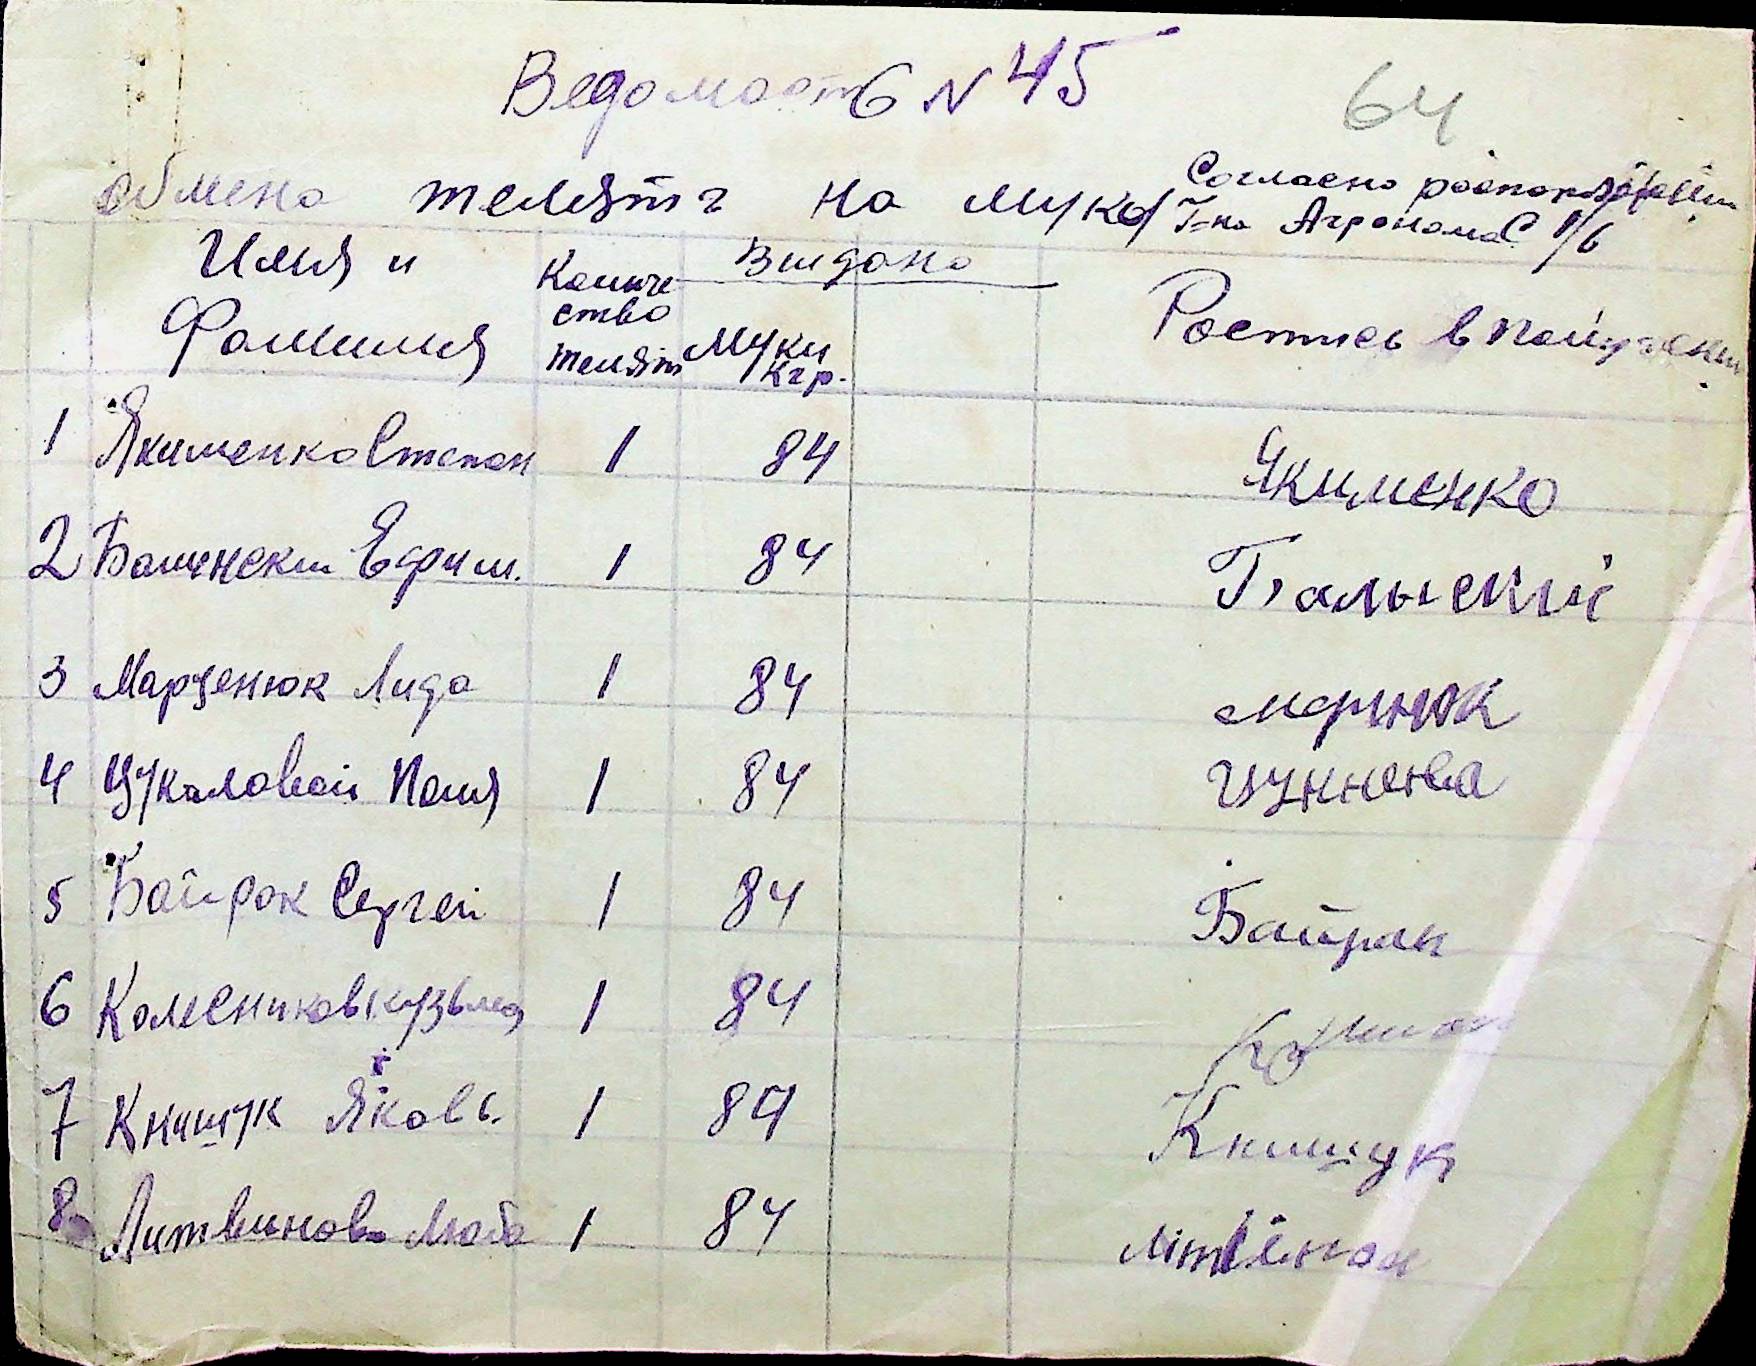 Ведомость N 45
64
обмена телят на муку
Согласно распоряжения
Г-на Агронома С 1/6
Имя и
Фамилия
Количе
ство
телят
Выдано
Муки
Кгр.
Роспись в получении
1 Якименко Степан 1 84 Якименко
2 Балинский Ефим. 1 84
3 Марценюк Лида 1 84
4 Цукаловой Поля 1 84
5 Байрак Сергей 1 84 Байрак
6 Колесников Кузьма 1 84
7 Книщук Яковь. 1 84 Книщук
8 Литвинова Люба 1 84